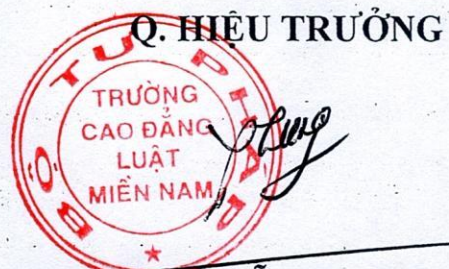 Q. HIỆU TRƯỞNG
BỘ TƯ PHÁP
TRƯỜNG
CAO ĐẲNG
LUẬT
MIỀN NAM